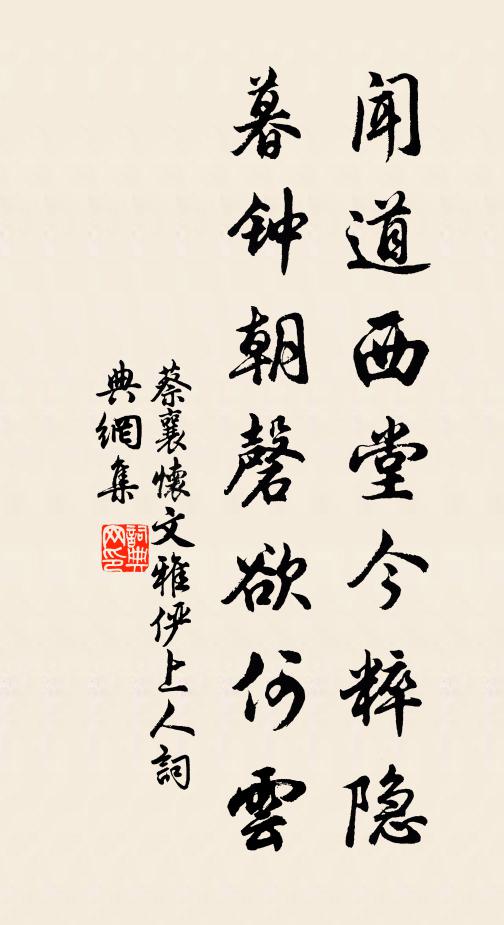 闻道西堂今粹隐
暮钟朝磬欲何雲
蔡襄懷文雅伊上人詞
典網集
詞典网印